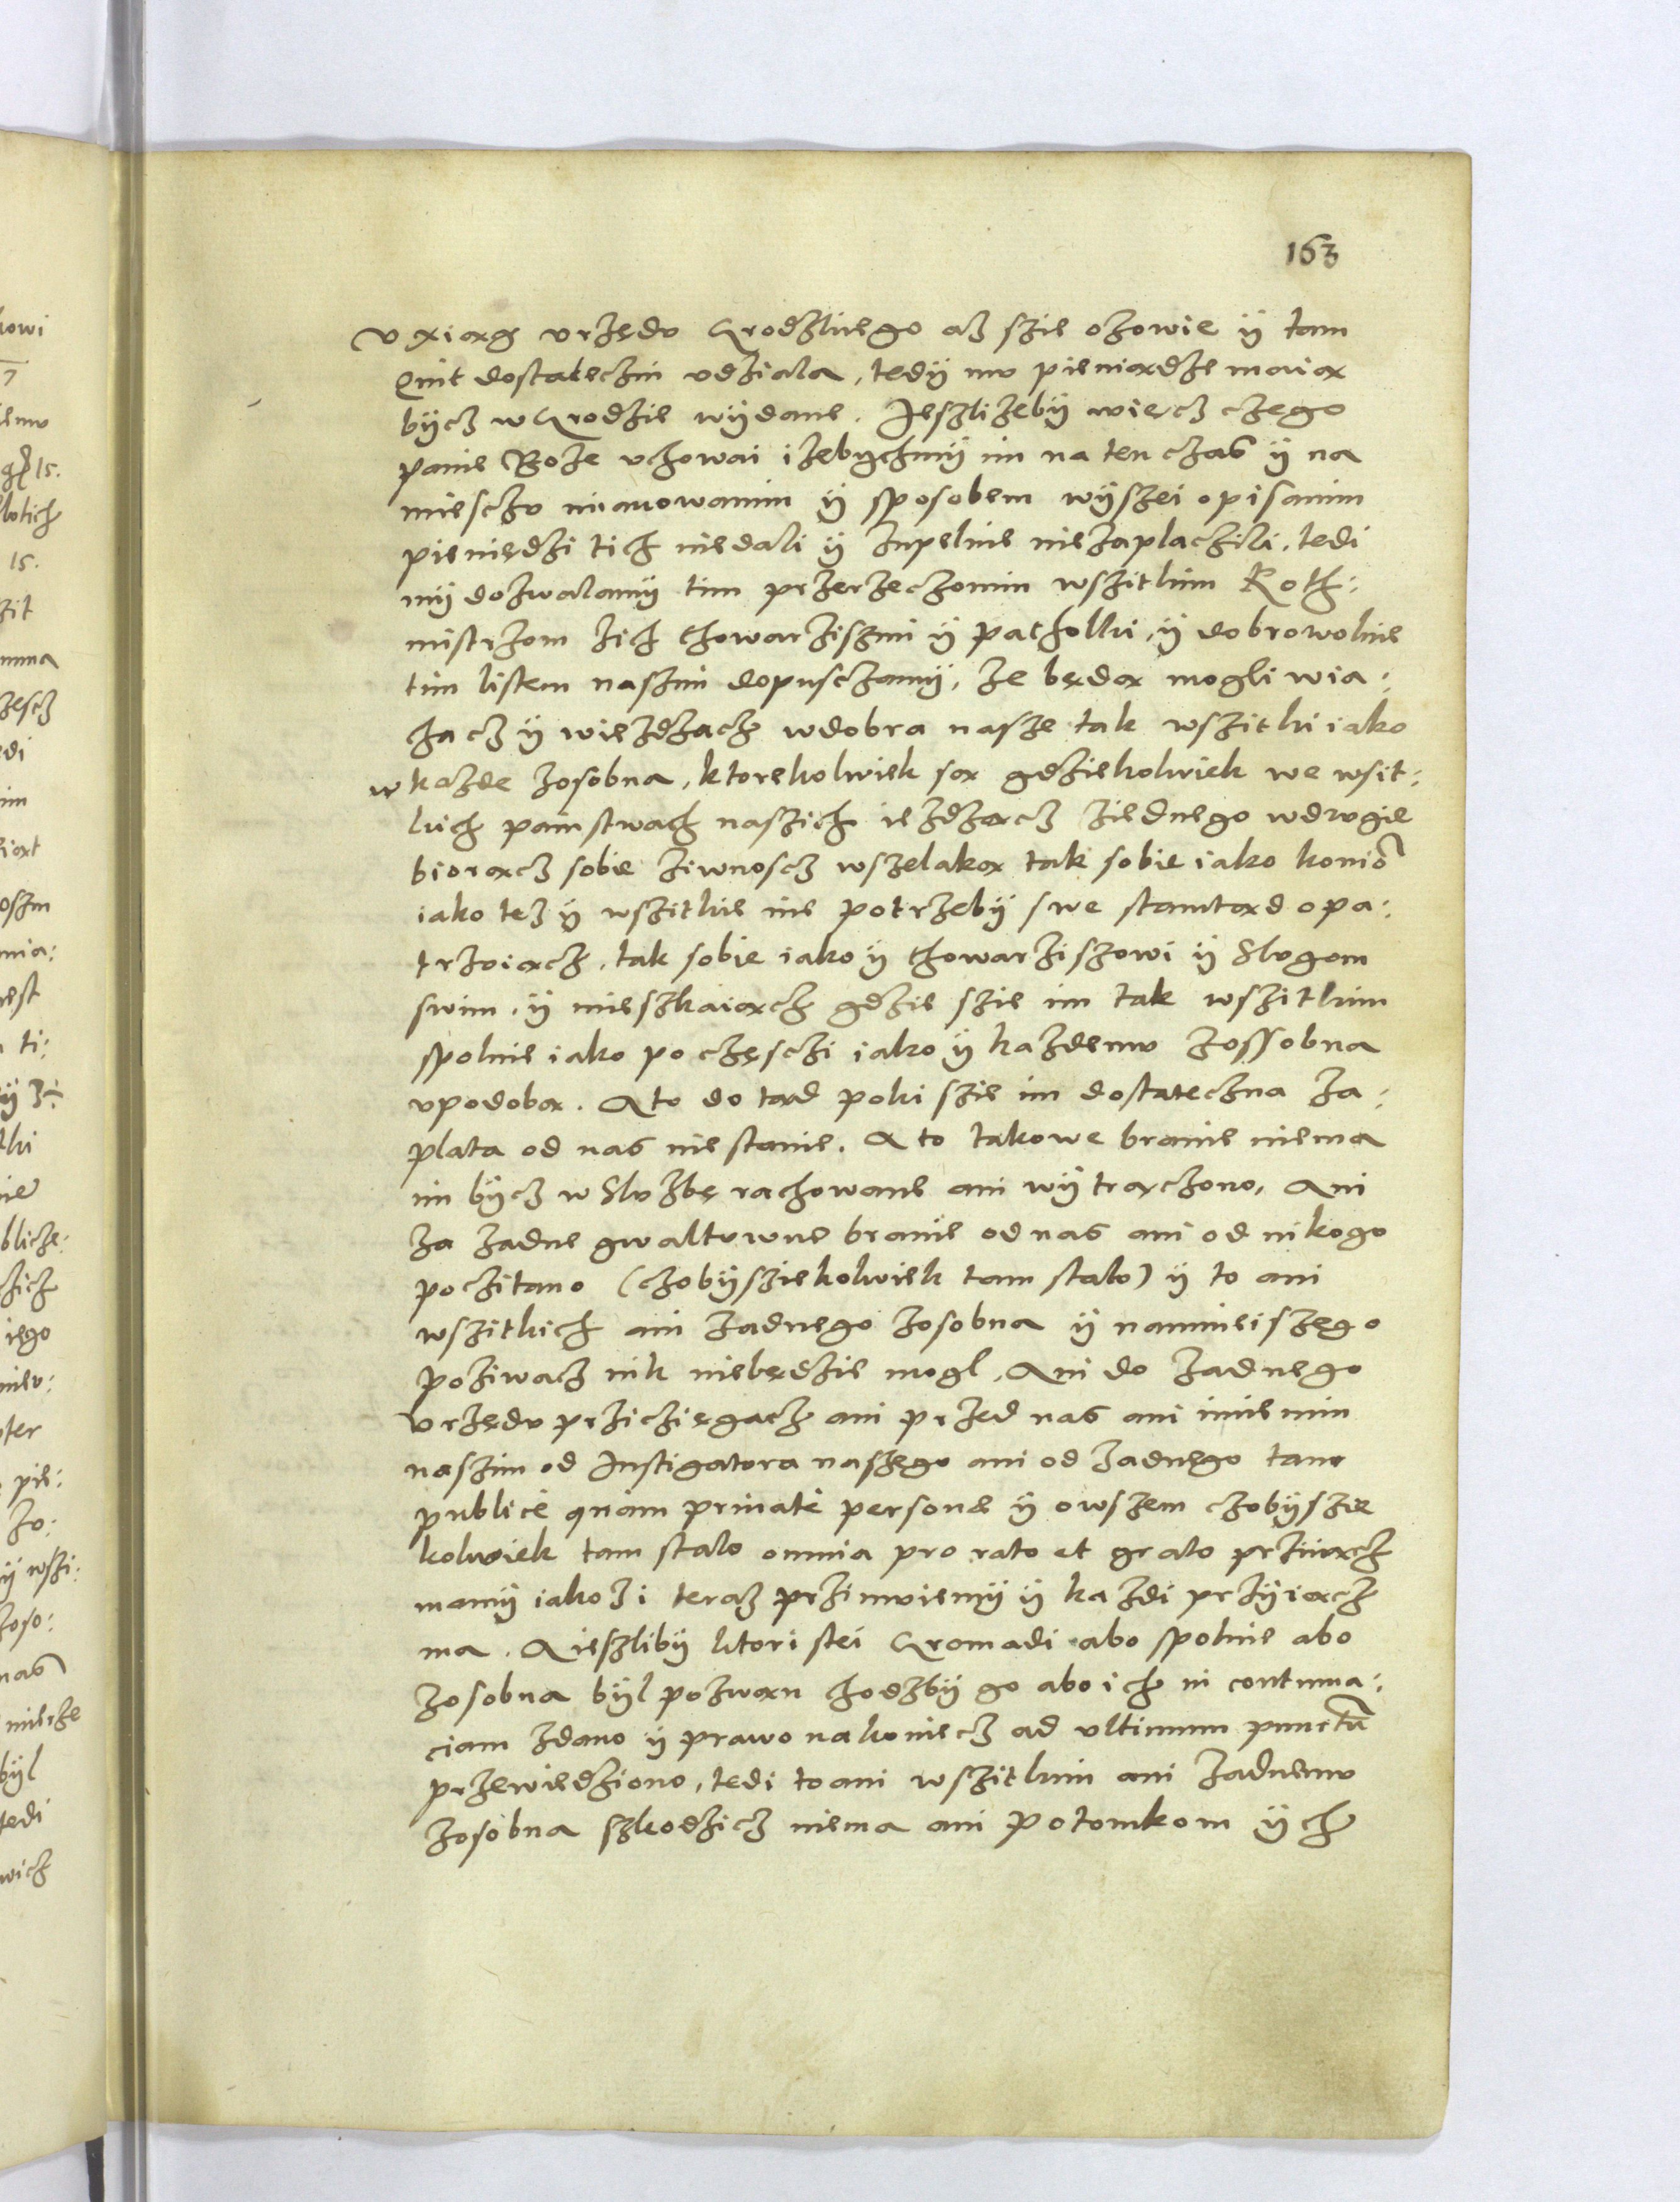 163
v xiąg vrzędu Grodzkiego asz szie ozowie ÿ tam
Qnit dostateczni vdziala, tedÿ mu pieniądze maią
bÿcz w Grodzie wÿdane. Jeszlizebÿ więcz czego
panie Boże vchowai izebychmÿ im na ten czas ÿ na
miesczu mianowanim ÿ sposobem wÿszei opisanim
pieniędzi tich niedali ÿ zupelnie niezaplaczili, tedi
mÿ dozwalamÿ tim przerzeczonim wszitkim Roth:
mistrzom zich thowarziszmi ÿ pacholki, ÿ dobrowolnie
tim listem naszim dopusczamÿ, ze będą mogli wia:
chacz ÿ wiezdzacz wdobra nasze tak wszitki iako
w kazde zosobna, ktorekolwiek są gdziekolwiek we wsit:
kich painstwach naszich iezdzącz ziednego wdrugie
biorącz sobie ziwnoscz wszelaką tak sobie iako koniom
iako tez ÿ wszitkie ine potrzebÿ swe stamtąd opa:
trzuiącz, tak sobie iako ÿ thowarziszowi ÿ Slugom
swim, ÿ mieszkaiącz gdzie szie im tak wszitkim
spolnie iako po częsczi iako ÿ kazdemu zossobna
vpodoba. A to do tąd poki szie im dostateczna za:
plata od nas niestanie. A to takowe branie niema
im bÿcz w Sluzbę rachowane ani wÿtrączono, Ani
za zadne gwaltowne branie od nas ani od nikogo
poczitano (czobÿsziekolwiek tam stalo) ÿ to ani
wszitkich ani zadnego zosobna ÿ namnieiszego
poziwacz nik niebędzie mogl, Ani do zadnego
vrzędu przicziegacz ani przed nas ani imienim
naszim od Instigatora naszego ani od zadnego tam
publicè quam priuatè persone ÿ owszem czobÿszie
kolwiek tam stalo omnia pro rato et grato prziiącz
mamÿ iakoz i teraz przimuiemÿ ÿ kazdi przÿiącz
ma. A ieszlibÿ ktori stei Gromadi abo spolnie abo
zosobna bÿl pozwan chodzbÿ go abo ich in contuma:
ciam zdano ÿ prawo nakoniecz ad vltimum punctum
przewiedziono, tedi to ani wszitkim ani zadnemu
zosobna szkodzicz niema ani potomkom ÿch